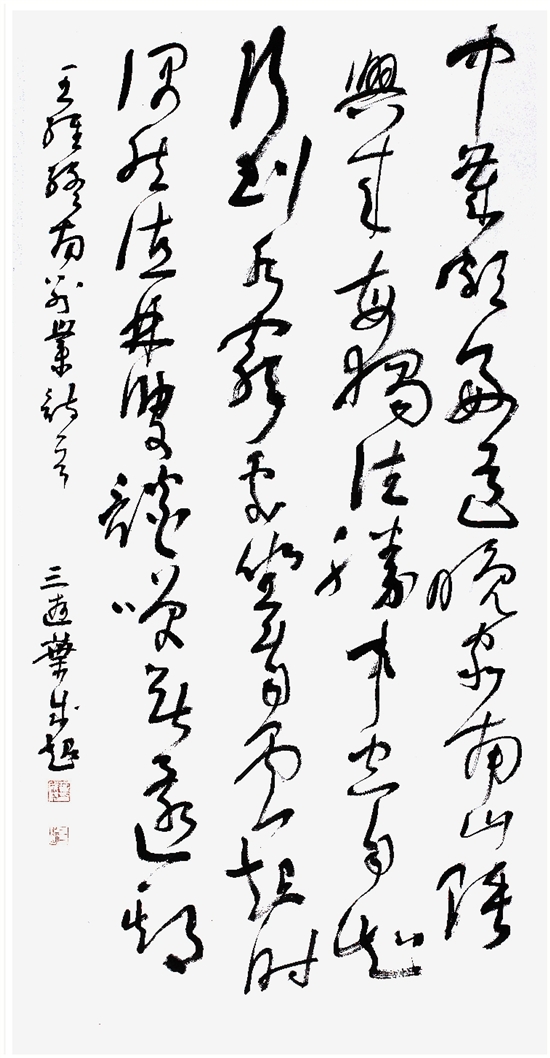 中歲頗好道晚家南山陲
興來每獨往勝事空自知
行到水窮處坐看雲起時
偶然值林叟談笑無還期
王維終南別業詩一首
葉成